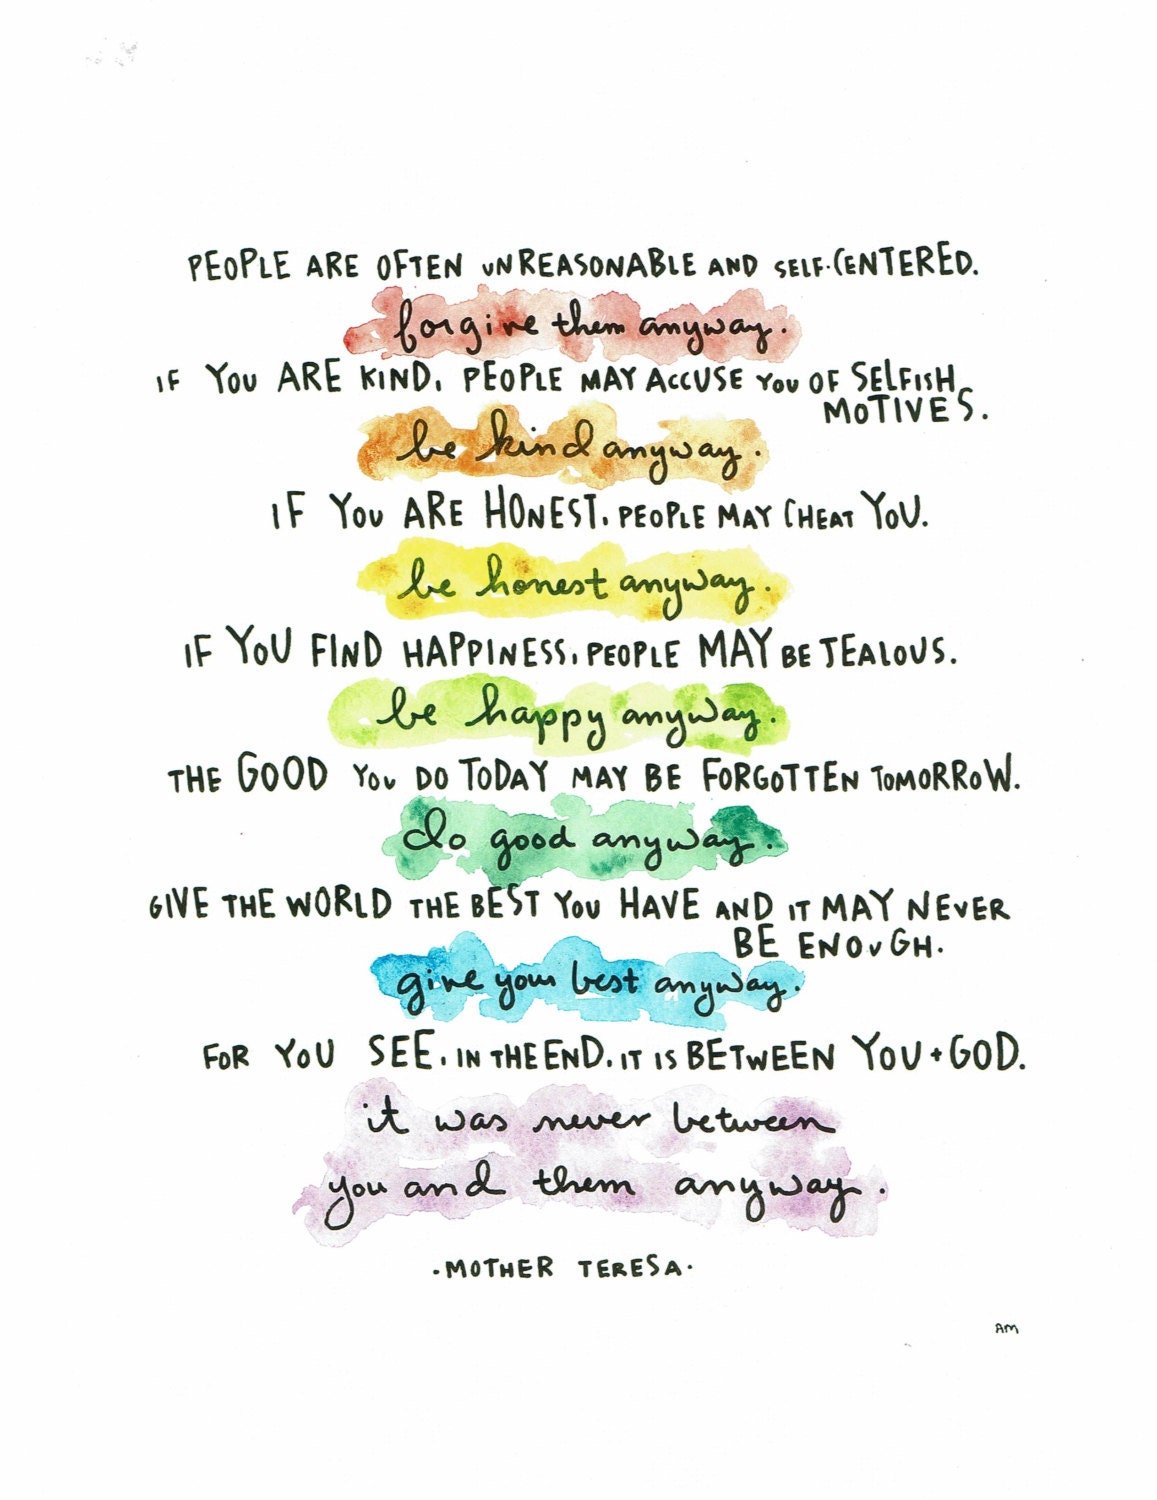 PEOPLE ARE OFTEN UNREASONABLE AND SELF-CENTERED.
forgive them anyway.
IF YOU ARE KIND, PEOPLE MAY ACCUSE YOU OF SELFISH
MOTIVES.
be kind anyway.
IF YOU ARE HONEST, PEOPLE MAY CHEAT YOU.
be honest anyway.
IF YOU FIND HAPPINESS, PEOPLE MAY BE JEALOUS.
be happy anyway.
THE GOOD YOU DO TODAY MAY BE FORGOTTEN TOMORROW.
do good anyway.
GIVE THE WORLD THE BEST YOU HAVE AND IT MAY NEVER
BE ENOUGH.
give your best anyway.
FOR YOU SEE, IN THE END, IT IS BETWEEN YOU + GOD.
it was never between
you and them anyway.
-MOTHER TERESA-
AM